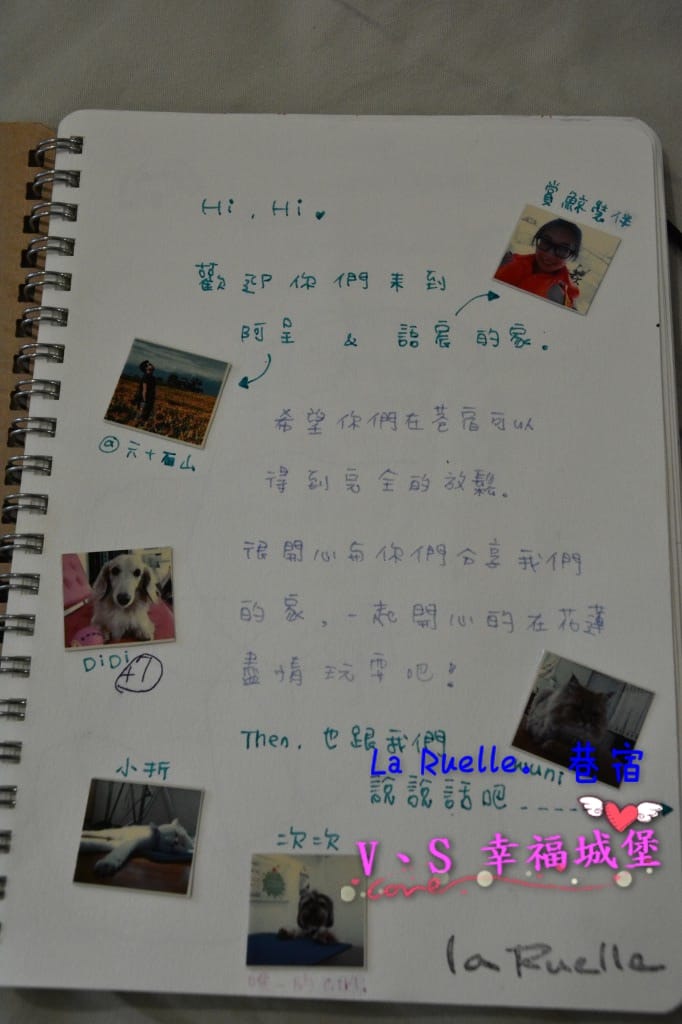 Hi, Hi
賞鯨裝伴
歡迎你們來到
阿呈 & 語宸的家。
@六十石山
希望你們在巷宿可以
得到完全的放鬆。
很開心與你們分享我們
的家,一起開心的在花蓮
盡情玩耍吧!
DiDi
+1
Then, 也跟我們
說說話吧----
La Ruelle. 巷宿
小折
次次
V、S 幸福城堡
Love
la Ruelle